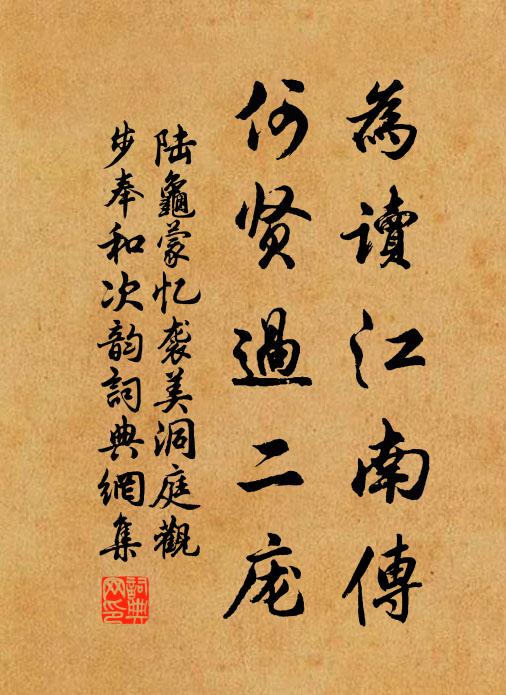 為讀江南傳
何贤過二庞
陆龜蒙忆袭美洞庭觀
步奉和次韵詞典網集
詞典網印